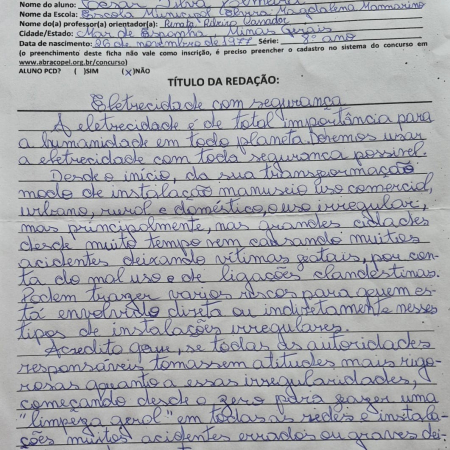 Nome do aluno: Cesar Silva
Nome da Escola: Escola Municipal Magdalena Mannarino
Nome do(a) professor(a) orientador(a): Renato Ribeiro
Cidade/Estado: Mar de Espanha, Minas Gerais
Data de nascimento: 26 de novembro de 1977 Série: 8º ano
(o preenchimento desta ficha não vale como inscrição, é preciso preencher o cadastro no sistema do concurso em
www.abracopel.org.br/concurso)
ALUNO PCD? ( )SIM (x)NÃO
TÍTULO DA REDAÇÃO:
Eletrecidade com segurança
A eletrecidade é de total importância para
a humanidade em todo planeta. Devemos usar
a eletrecidade com toda segurança possível.
Desde o início, da sua transformação
modo de instalação manuseio uso comercial,
urbano, rural e doméstico, o uso irregular,
mas principalmente, nas grandes cidades
desde muito tempo vem causando muitos
acidentes deixando vítimas fatais, por con-
ta do mal uso e de ligações clandestinas.
Podem trazer varios riscos para quem es-
tá envolvido direta ou indiretamente nesses
tipos de instalações irregulares.
Acredito que, se todas as autoridades
responsáveis tomassem atitudes mais rigo-
rosas quanto a essas irregularidades,
começando desde o zero para fazer uma
"limpeza geral" em todas as redes e instala-
ções muitos acidentes errados ou graves dei-